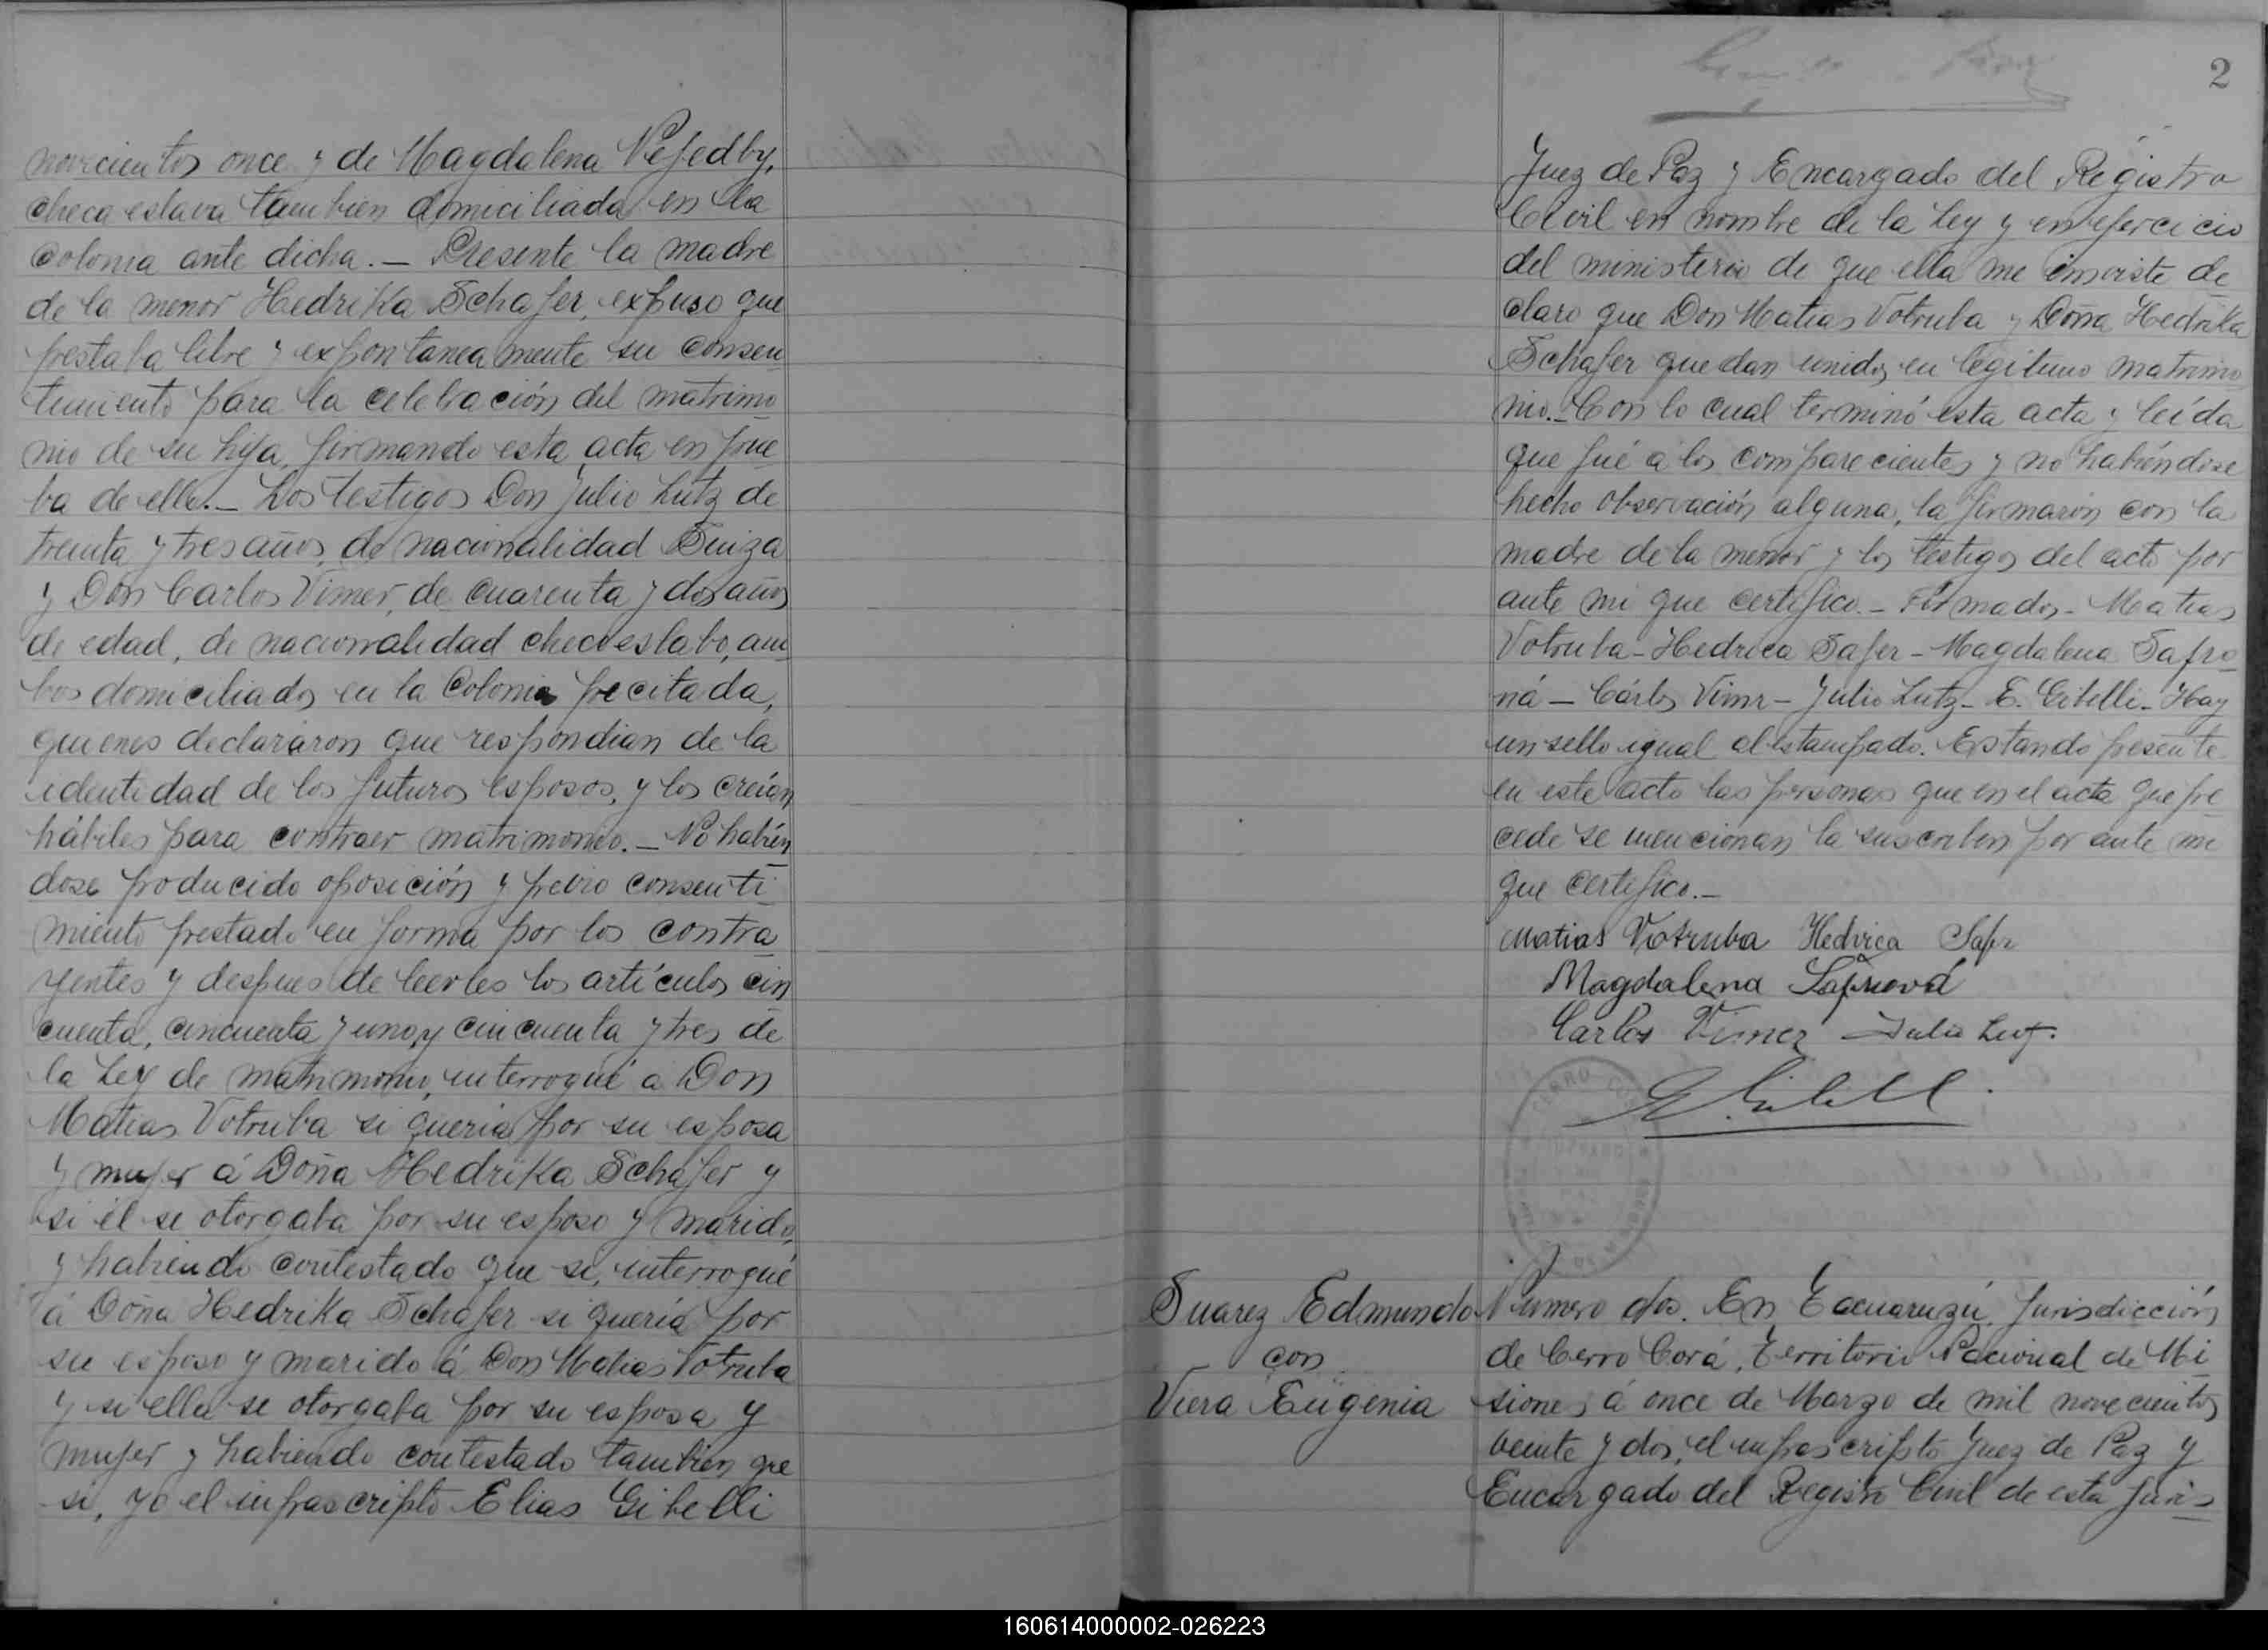 novecientos once y de Magdalena Nefedby,
checa eslava tambien domiciliada en la
colonia ante dicha. — Presente la madre
de la menor Hedrika Schafer, expuso que
prestaba libre y expontaneamente su consen
timiento para la celebración del matrimo
nio de su hija, firmando esta acta en prue
ba de ello. — Los testigos Don Julio Lutz de
treinta y tres años, de nacionalidad Suiza
y Don Carlos Vimer, de cuarenta y dos años
de edad, de nacionalidad checoeslabo, am
bos domiciliados en la Colonia precitada,
quienes declararon que respondian de la
identidad de los futuros esposos, y los creían
hábiles para contraer matrimonio. — No habién
dose producido oposición y previo consenti
miento prestado en forma por los contra
yentes y despues de leerles los artículos cin
cuenta, cincuenta y uno, y cincuenta y tres de
la Ley de matrimonio, interrogué a Don
Matias Votruba si queria por su esposa
y mujer á Doña Hedrika Schafer y
si él se otorgaba por su esposo y marido,
y habiendo contestado que si, interrogué
á Doña Hedrika Schafer si quería por
su esposo y marido á Don Matias Votruba
y si ella se otorgaba por su esposa y
mujer y habiendo contestado tambien que
si, yo el infrascripto Elias Gibelli
2
Juez de Paz y Encargado del Registro
Civil en nombre de la Ley y en ejercicio
del ministerio de que ella me inviste de
claro que Don Matias Votruba y Doña Hedrika
Schafer quedan unidos en legitimo matrimo
nio. — Con lo cual terminó esta acta y leída
que fué a los comparecientes y no habiéndose
hecho observación alguna, la firmaron con la
madre de la menor y los testigos del acto por
ante mi que certifico. — Firmados — Matias
Votruba — Hedrica Safer — Magdalena Safro
ná — Cárlos Vimr — Julio Lutz — E. Gibelli — Hay
un sello igual al estampado. Estando presente
en este acto las personas que en el acta que pre
cede se mencionan la suscriben por ante mi
que certifico. —
Matias Votruba Hedvica Safr
Magdalena Šafrová
Carlos Vimer Julio Lutz.
E. Gibelli
CERRO CORÁ
Suarez Edmundo
con
Viera Eugenia
Número dos. En Tacuaruzú, Jurisdicción
de Cerro Corá, Territorio Nacional de Mi
siones á once de Marzo de mil novecientos
veinte y dos, el infrascripto Juez de Paz y
Encargado del Registro Civil de esta Juris
160614000002-026223